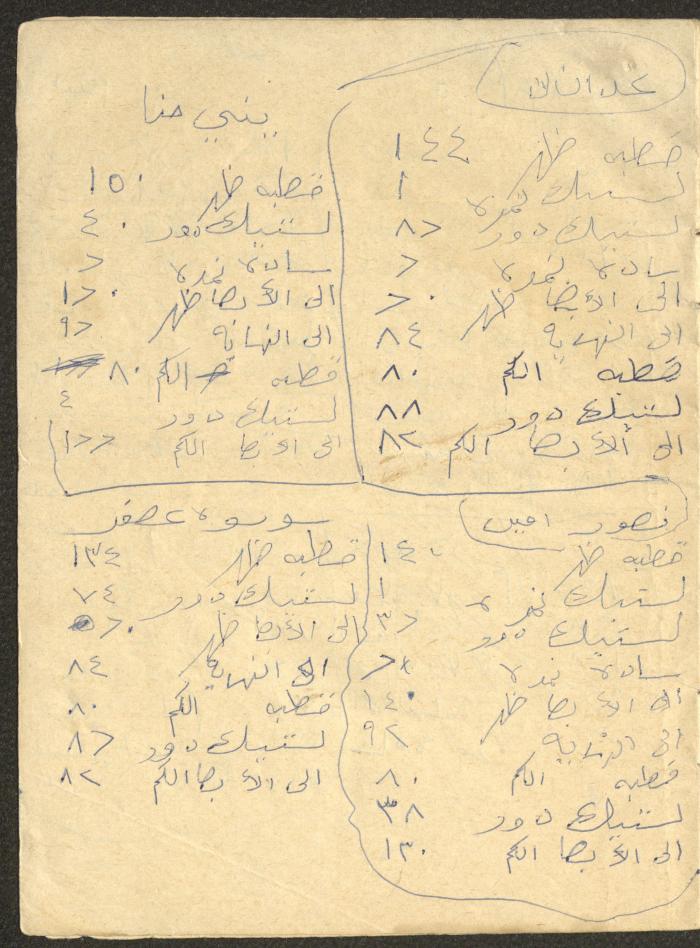 قطبه ظهر ١٤٤
لستيك نمرة ١
لستيك دور ٨٢
سادة نمرة ٢
الى الأبط ظهر ٢٠
الى النهاية ٨٤
قطبه الكم ٨٠
لستيك دور ٨٨
الى الأبط الكم ٨٢
يني حنا
قطبه ظهر ١٥٠
لستيك دور ٤٠
سادة نمرة ٢
الى الأبط ظهر ١٢٠
الى النهاية ٩٢
قطبه الكم ٨٠
لستيك دور ٤
الى الابط الكم ١٢٢
امين
قطبه ظهر ١٤٠
لستيك نمرة ١
لستيك دور ٣٢
سادة نمرة ٢
الى الأبط ظهر ١٤٠
الى النهاية ٩٢
قطبه الكم ٨٠
لستيك دور ٣٨
الى الأبط الكم ١٣٠
عصفر
قطبه ظهر ١٣٤
لستيك دور ٧٤
الى الأبط ظهر ٢٠
الى النهاية ٨٤
قطبه الكم ٨٠
لستيك دور ٨٢
الى الأبط الكم ٨٢